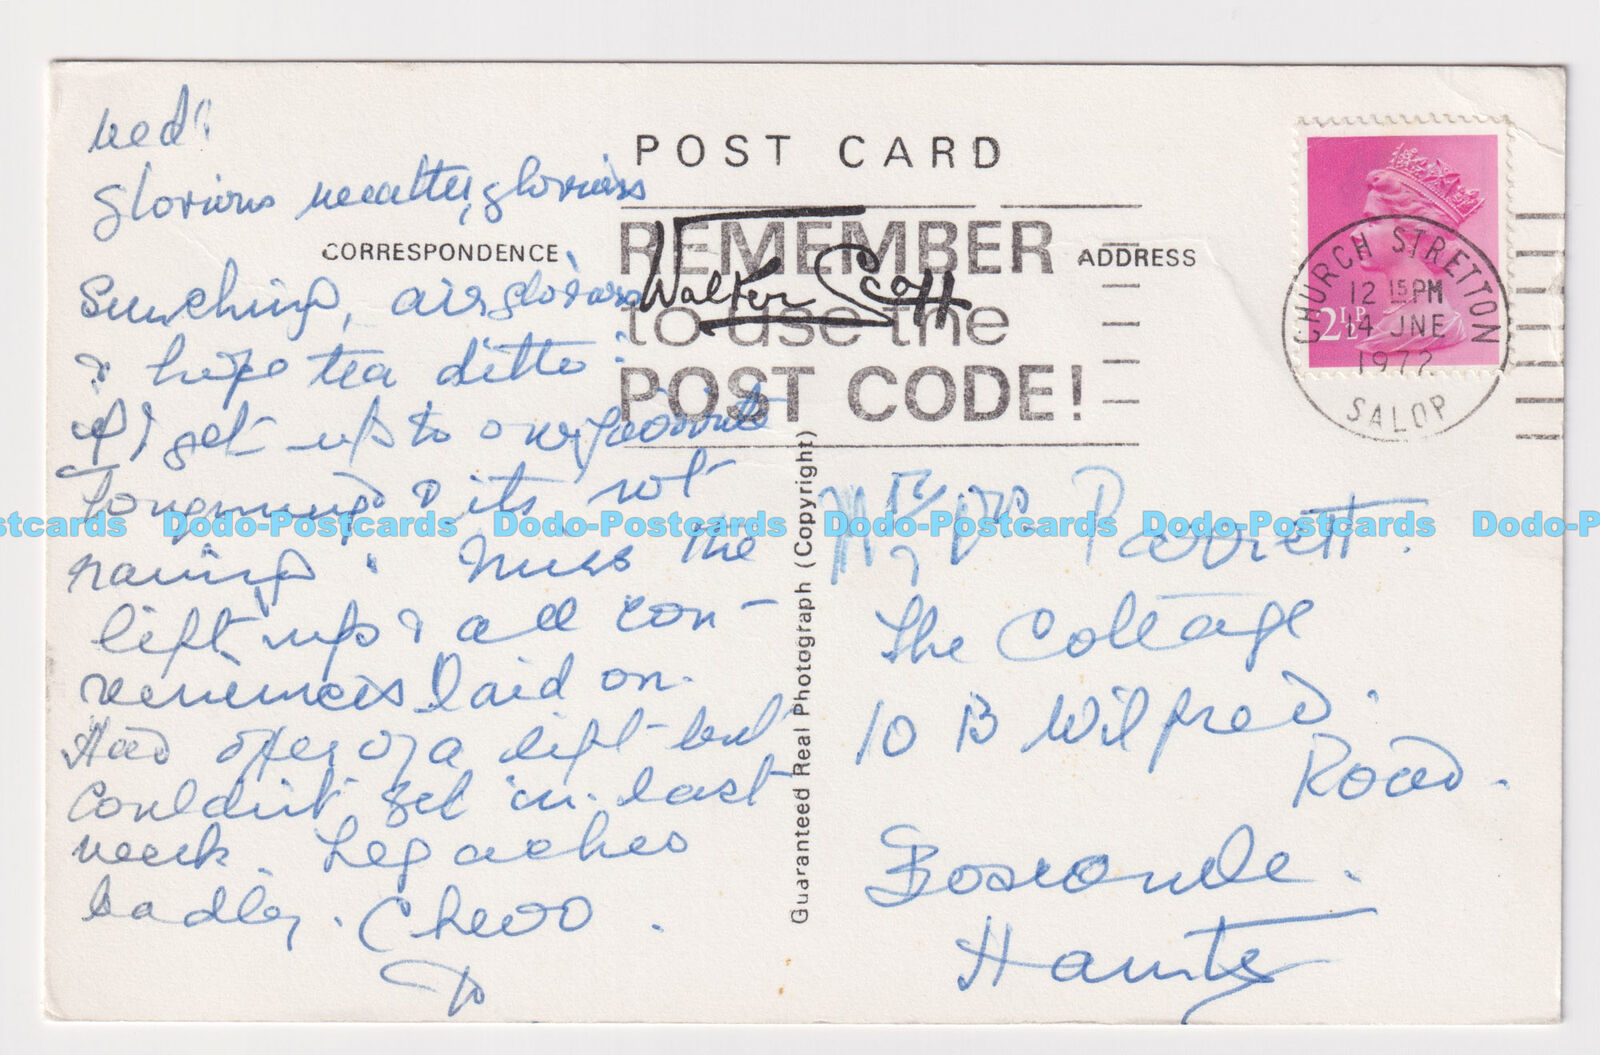 Wed!
Glorious weather, glorious
Sunshine, air glorious
& hope tea ditto!
if I get up to our favourite
& its not
raining. Miss the
lift up & all con-
veniences laid on.
Had offer of a lift but
couldn't get in. last
week. Leg aches
badly. Cheero.
POST CARD
CORRESPONDENCE
ADDRESS
REMEMBER
to use the
POST CODE!
Walter Scott
CHURCH STRETTON
12 15 PM
14 JNE
1972
SALOP
2½P
Guaranteed Real Photograph (Copyright)
Mr & Mrs Parrett.
The Cottage
10 B Wilfred
Road.
Boscombe.
Hants
Dodo-Postcards Dodo-Postcards Dodo-Postcards Dodo-Postcards